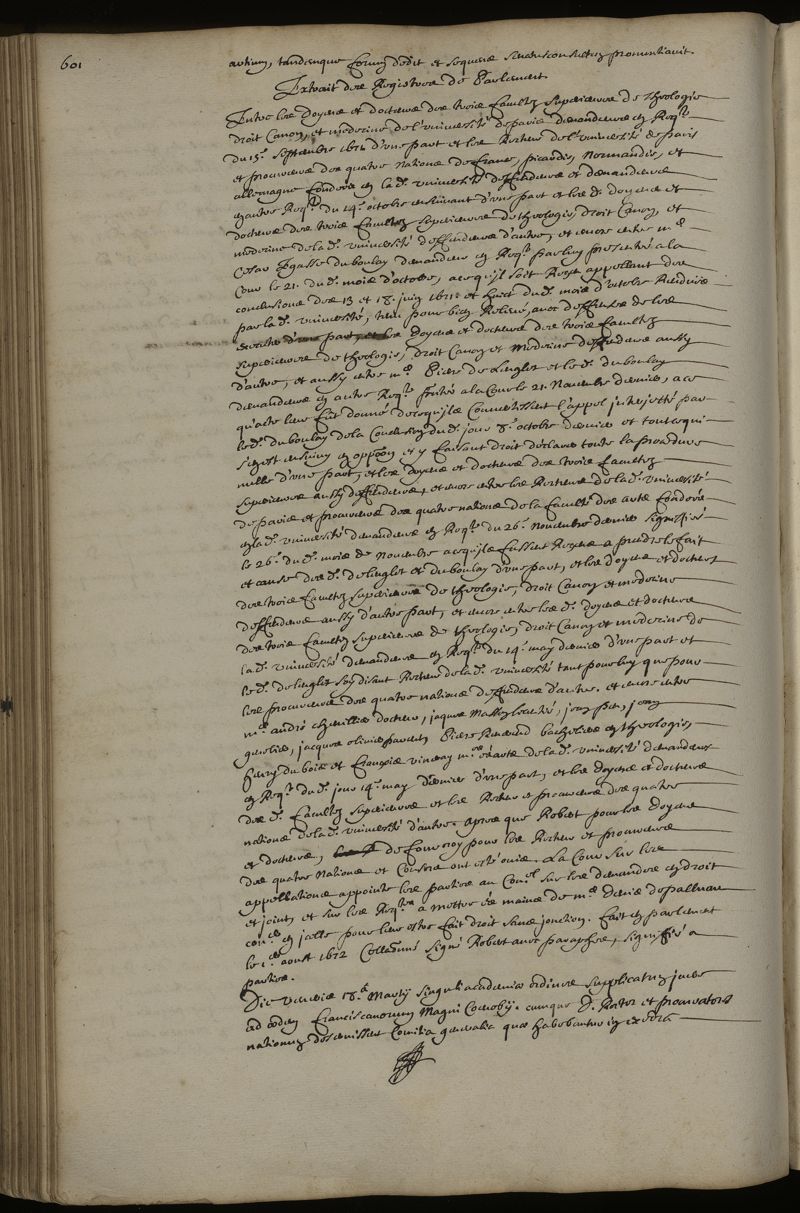 601
artium, tandemque eorum dedit et sequens senatusconsultum pronuntiavit.
Extrait des Registres de Parlement
Entre les doyens et docteurs des trois facultez superieures de theologie
droit Canon, et medecine de l'université de paris demandeurs en Reqte
du 15e septembre 1671 d'une part et les Recteur de l'université de paris
et procureurs des quatre nations de france, picardie, Normandie, et
allemagne fondées en lad. université deffendeurs et demandeurs
en autre Reqte du 14e octobre ensuivant d'une part et lesd. doyens et
docteurs des trois facultez superieures de theologie, droit Canon et
medecine de lad. université deffendeurs d'autre, et encore entre me
Cesar Egasse du boulay demandeur en Reqte par luy presentée a la
Cour le 21. dud. mois d'octobre, a ce qu'il soit Receu appellant des
conclusions des 13 et 18. juin 1671 et huict dud. mois d'octobre Rendues
par lad. université, tenu pour bien Relevé, avec deffenses de les
executer d'une part, et les doyens et docteurs des trois facultez
superieures de theologie, droit Canon et medecine deffendeurs aussy
d'autre, et aussy entre me Pierre de Lenglet et led. du boulay
demandeurs en autre Reqte pntée a la Cour le 21. Novembre dernier, a ce
qu'acte leur fût donné de ce qu'ils Convertissent l'appel interjetté par
led. du boulay de la Conclusion dud. jour 8e octobre dernier et tout ce qui
s'en est ensuivy en oppon et y faisant droit declarer toute la procedure
nulle d'une part, et les doyens et docteurs des trois facultez
superieures aussy deffendeurs, et encore entre les Recteur de lad. université
de paris et procureurs des quatre nations de la faculté des arts fondées
en lad. université demandeurs en Reqte du 26e Novembre dernier signiffiée
le 26e dud. mois de Novembre a ce qu'ils fussent Receus a prendre le fait
et cause desd. de lenglet et du boulay d'une part, et les doyens et docteurs
des trois facultez superieures de theologie, droit Canon et medecine
deffendeurs aussy d'autre part, et encore entre lesd. doyens et docteurs
des trois facultez superieures de theologie, droit Canon et medecine de
lad. université demandeurs en Reqte du 14e may dernier d'une part et
led. de lenglet soy disant Recteur de lad. université tant pour luy que pour
les procureurs des quatre nations deffendeurs d'autre. et encore entre
me andré chevillier docteur, jacques Massy licentié, jean
jacques olivier Pierre bacheliers en theologie,
henry du bois et françois vincent mes es arts de lad. université demandeurs
en Reqte du d. jour 14e may dernier d'une part, et les doyens et docteurs
des d. facultez superieures et les Recteur et procureurs des quatre
nations de lad. université d'autre. apres que Robert pour les doyens
et docteurs, de Fourcroy pour les Recteur et procureurs
des quatre Nations et Consors ont esté ouis. La Cour sur les
appellations appointe les parties au Conel sur les demandes en droit
et joint, et sur les Reqtes a mettre es mains de me Denis depalluau
coner en jcelle pour leur estre fait droit sans jonction. fait en parlement
le 1er aoust 1672 Collaonné signé Robert avec paraphe, signiffié a
parties.
Die veneris 18a Martij singuli academiae ordines supplicatum juere
ad aedem Franciscanorum Magni Coenobij. cumque D. Rector et procuratores
nationum descenissent Comitia generalia quae habebantur in exedra